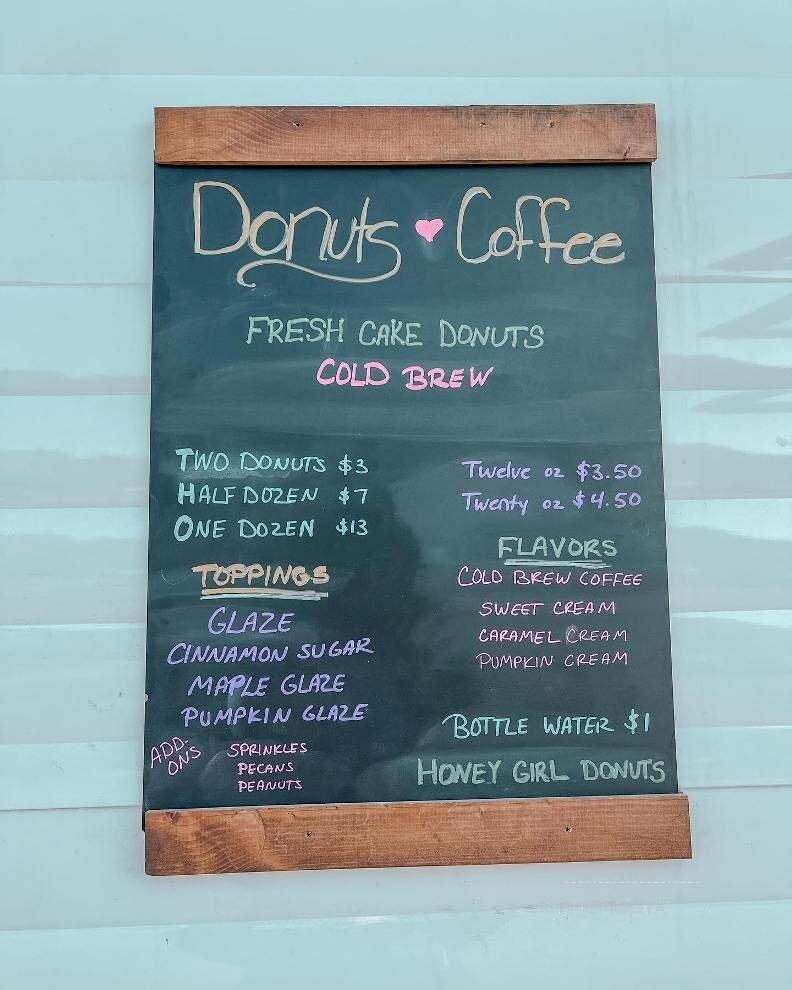 Donuts ♥ Coffee
FRESH CAKE DONUTS
COLD BREW
TWO DONUTS $3
HALF DOZEN $7
ONE DOZEN $13
TOPPINGS
GLAZE
CINNAMON SUGAR
MAPLE GLAZE
PUMPKIN GLAZE
ADD-
ONS
SPRINKLES
PECANS
PEANUTS
Twelve oz $3.50
Twenty oz $4.50
FLAVORS
COLD BREW COFFEE
SWEET CREAM
CARAMEL CREAM
PUMPKIN CREAM
BOTTLE WATER $1
HONEY GIRL DONUTS